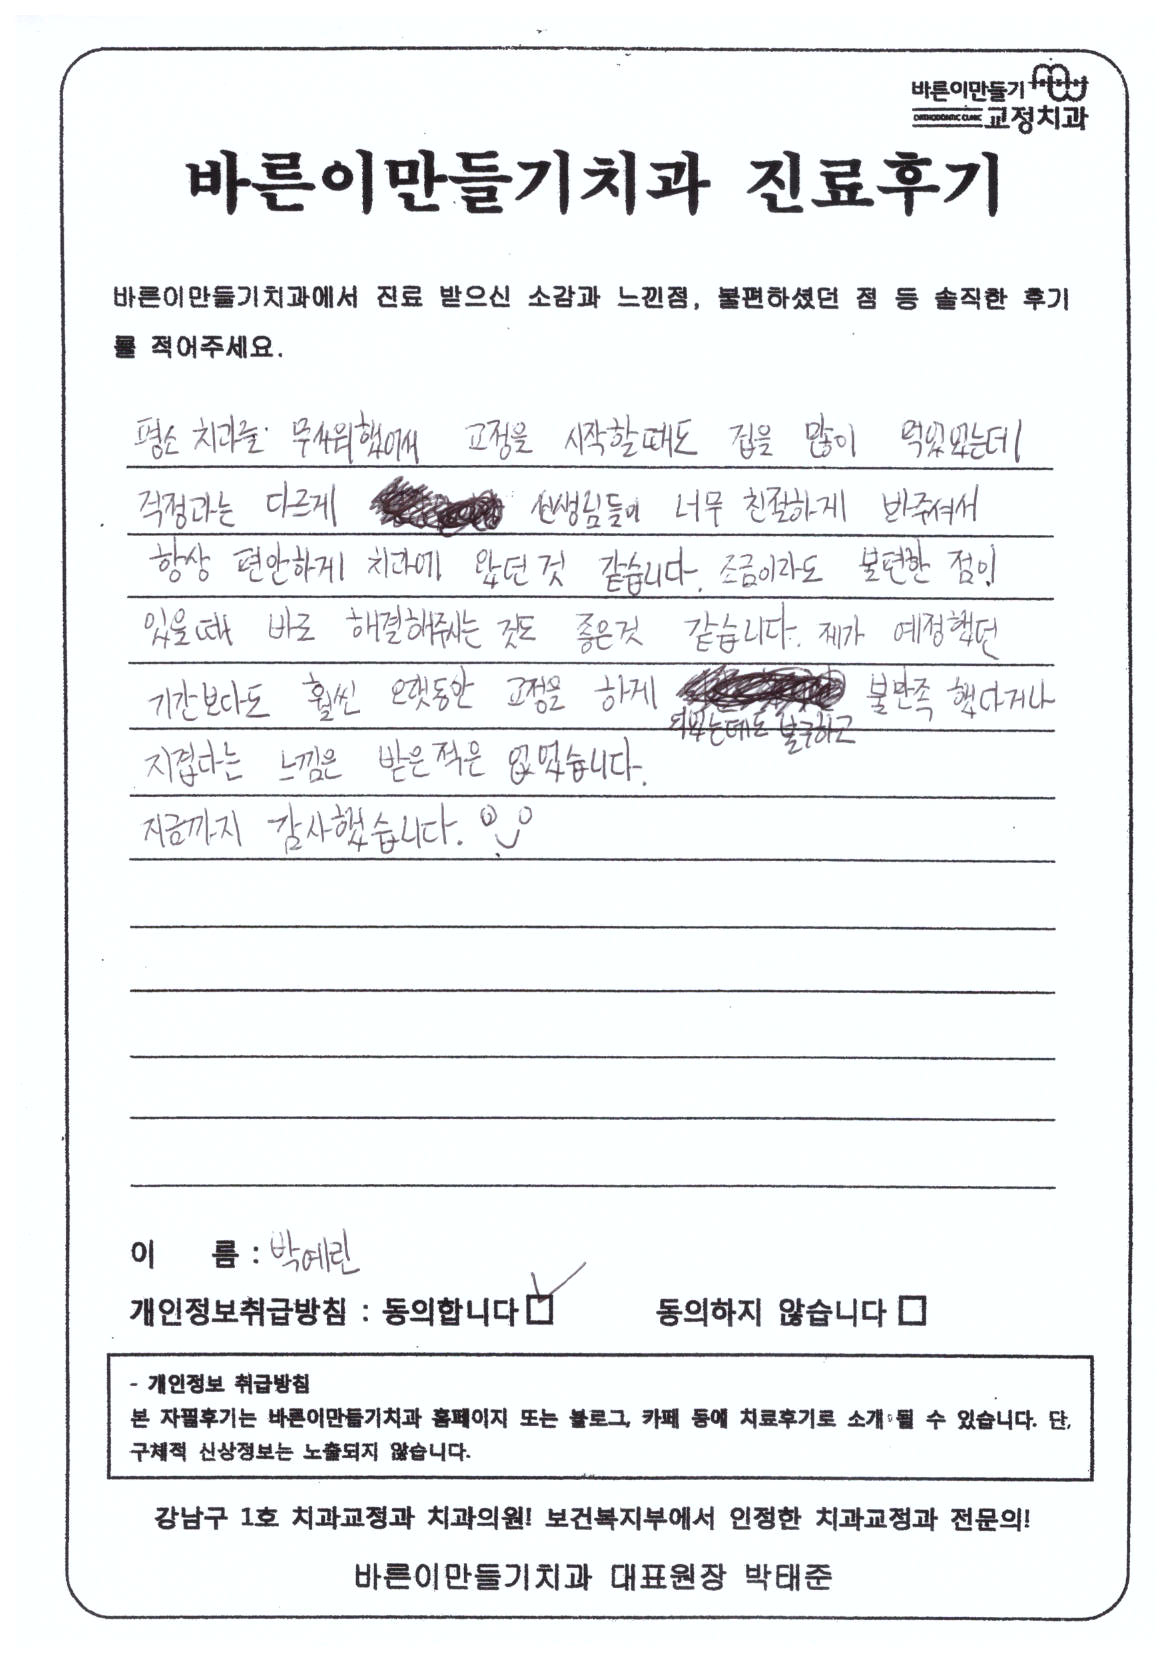 바른이만들기
ORTHODONTIC CLINIC 교정치과
바른이만들기치과 진료후기
바른이만들기치과에서 진료 받으신 소감과 느낀점, 불편하셨던 점 등 솔직한 후기
를 적어주세요.
평소 치과를 무서워했어서 교정을 시작할때도 겁을 많이 먹었었는데
걱정과는 다르게 선생님들이 너무 친절하게 봐주셔서
항상 편안하게 치과에 왔던 것 같습니다. 조금이라도 불편한 점이
있을때 바로 해결해주시는 것도 좋은것 같습니다. 제가 예정했던
기간보다도 훨씬 오랫동안 교정을 하게 불만족 했다거나
되었는데도 불구하고
지겹다는 느낌은 받은적은 없었습니다.
지금까지 감사했습니다.
이 름 : 박예린
개인정보취급방침 : 동의합니다 동의하지 않습니다
- 개인정보 취급방침
본 자필후기는 바른이만들기치과 홈페이지 또는 블로그, 카페 등에 치료후기로 소개 될 수 있습니다. 단,
구체적 신상정보는 노출되지 않습니다.
강남구 1호 치과교정과 치과의원! 보건복지부에서 인정한 치과교정과 전문의!
바른이만들기치과 대표원장 박태준